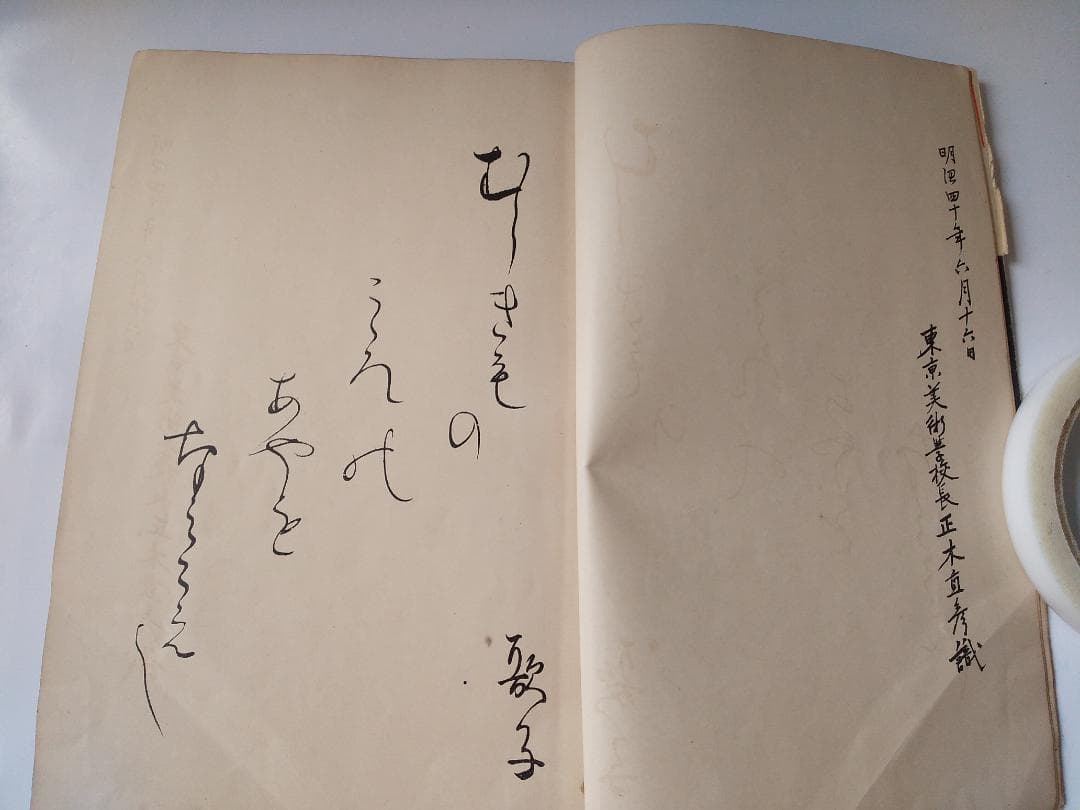 明治四十年六月十六日
東京美術学校長正木直彦識
むらきもの
こゝろの
あやを
歌子